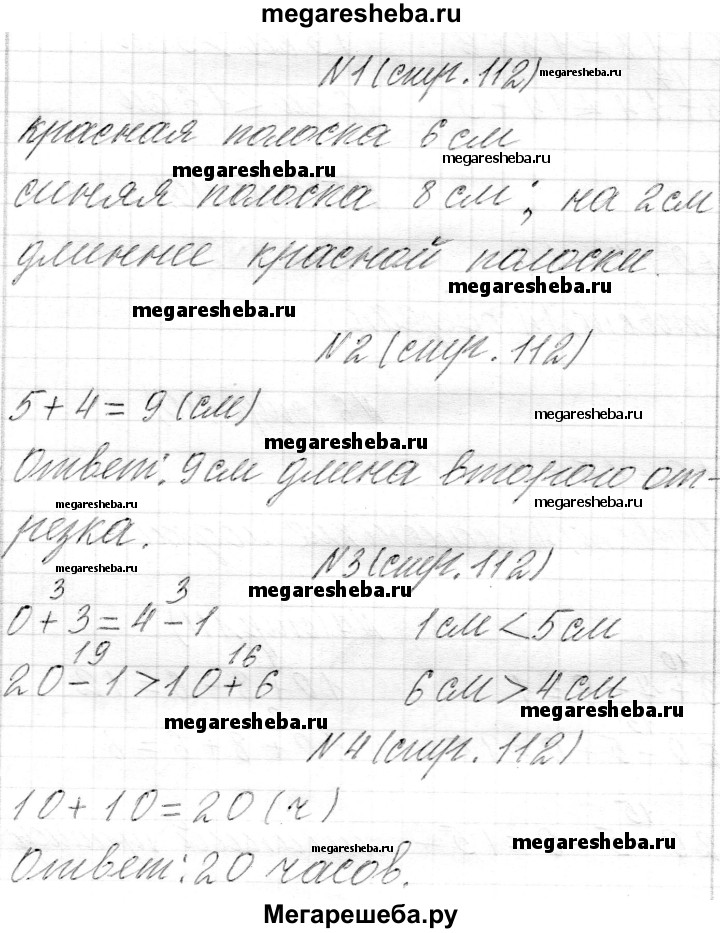 megaresheba.ru
N1(стр. 112) megaresheba.ru
красная полоска 6 см
megaresheba.ru megaresheba.ru
синяя полоска 8 см ; на 2 см
длиннее красной полоски.
megaresheba.ru
megaresheba.ru
N2 (стр. 112)
5 + 4 = 9 (см) megaresheba.ru
megaresheba.ru
Ответ: 9 см длина второго от-
megaresheba.ru megaresheba.ru
резка.
N3 (стр. 112)
megaresheba.ru megaresheba.ru
3 3
0 + 3 = 4 - 1 1 см < 5 см
19 16
20 - 1 > 10 + 6 6 см > 4 см
megaresheba.ru megaresheba.ru
N4 (стр. 112)
10 + 10 = 20 (ч)
megaresheba.ru megaresheba.ru
Ответ: 20 часов.
Мегарешеба.ру